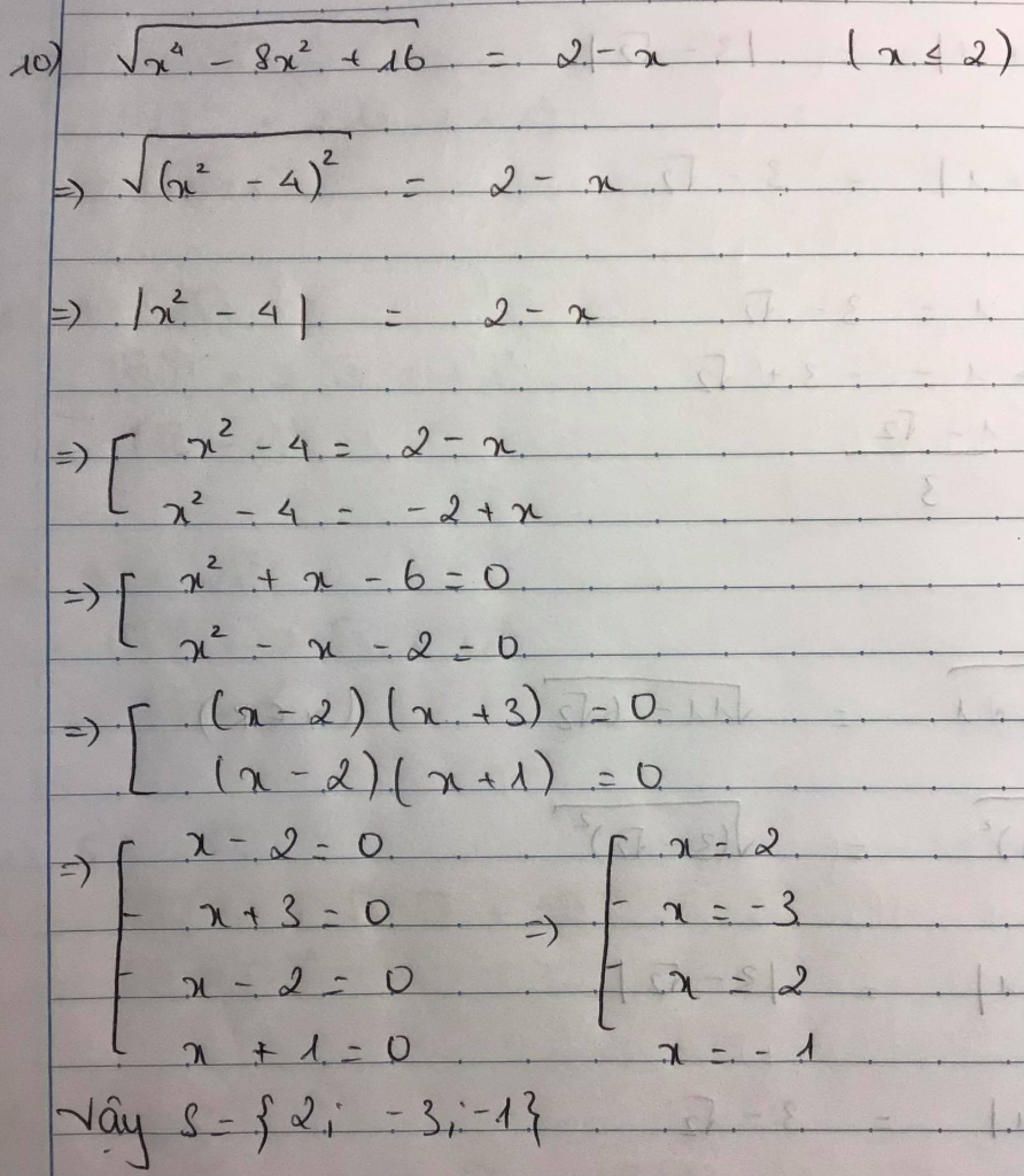 10) √(x⁴ - 8x² + 16) = 2 - x (x ≤ 2)
=> √((x² - 4)²) = 2 - x
=> |x² - 4| = 2 - x
=> [ x² - 4 = 2 - x
x² - 4 = -2 + x
=> [ x² + x - 6 = 0
x² - x - 2 = 0
=> [ (x - 2)(x + 3) = 0
(x - 2)(x + 1) = 0
=> [ x - 2 = 0 => [ x = 2
x + 3 = 0 x = -3
x - 2 = 0 x = 2
x + 1 = 0 x = -1
Vậy S = {2; -3; -1}